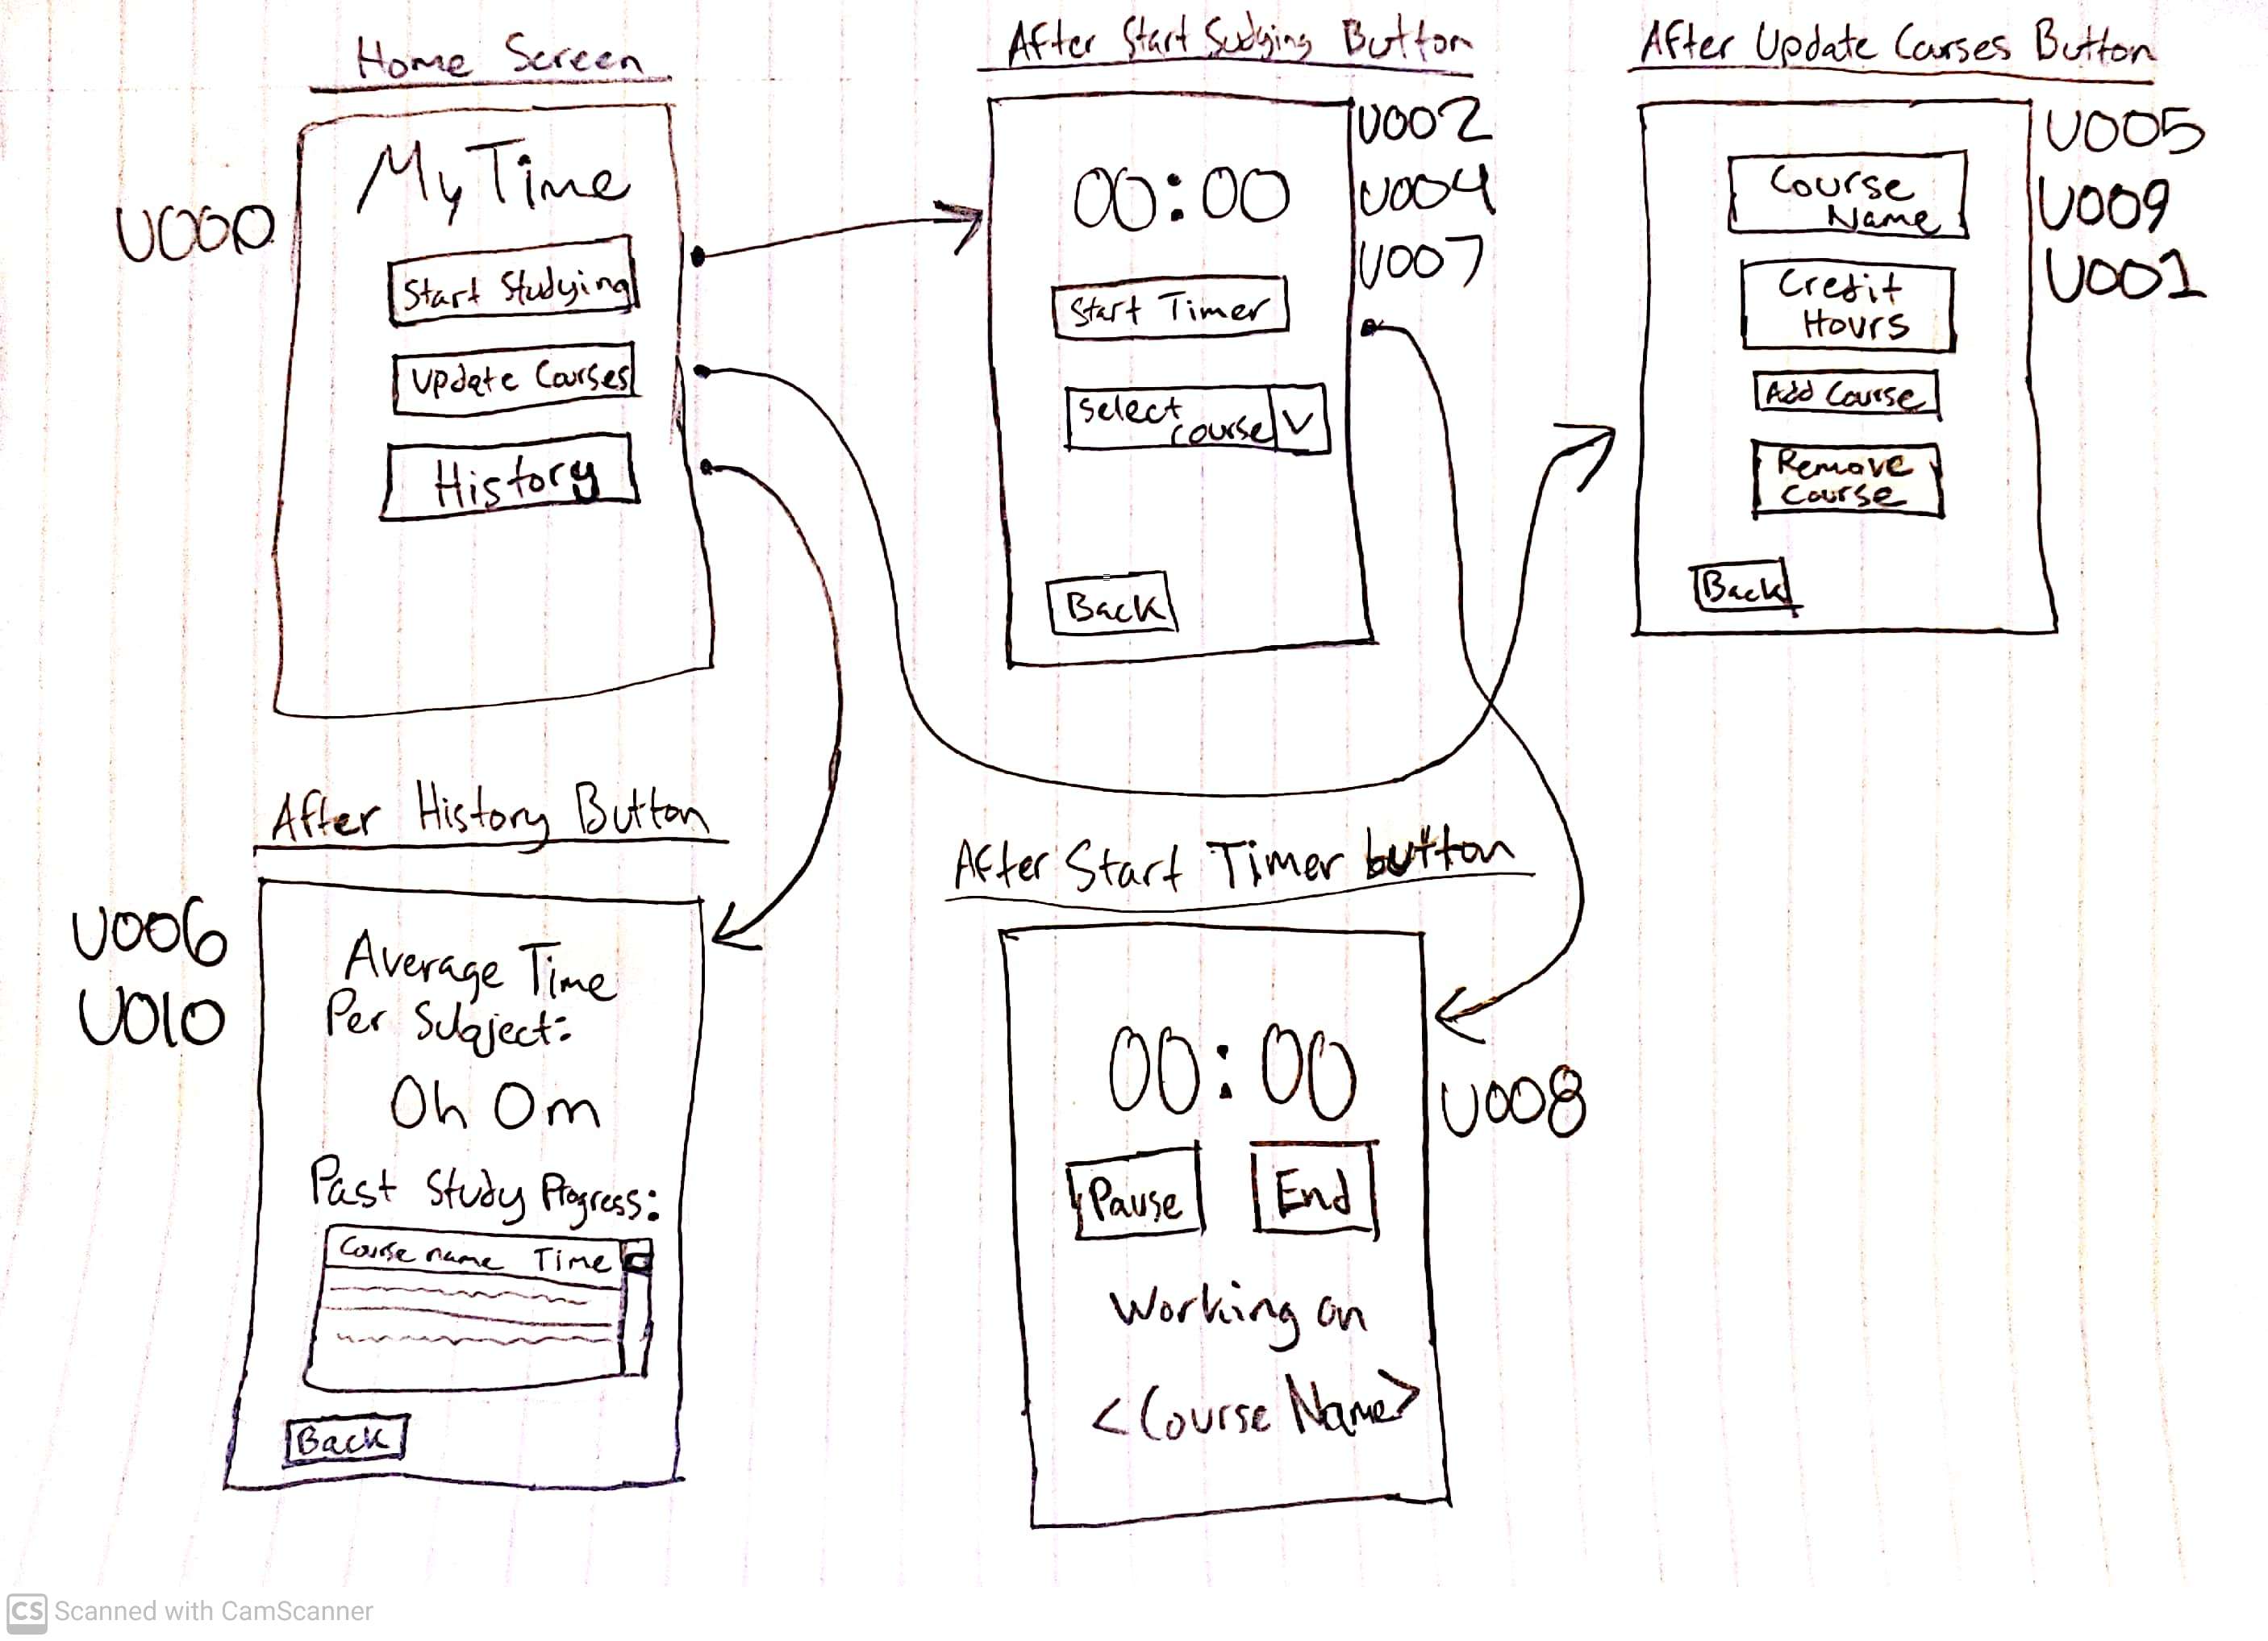 Home Screen
U000
My Time
Start Studying
Update Courses
History
After Start Sudying Button
U002
U004
U007
00:00
Start Timer
Select
course
V
Back
After Update Courses Button
U005
U009
U001
Course
Name
Credit
Hours
Add Course
Remove
Course
Back
After History Button
U006
U010
Average Time
Per Subject:
0h 0m
Past Study Progress:
Course name Time
Back
After Start Timer button
U008
00:00
Pause
End
Working on
<Course Name>
CS Scanned with CamScanner